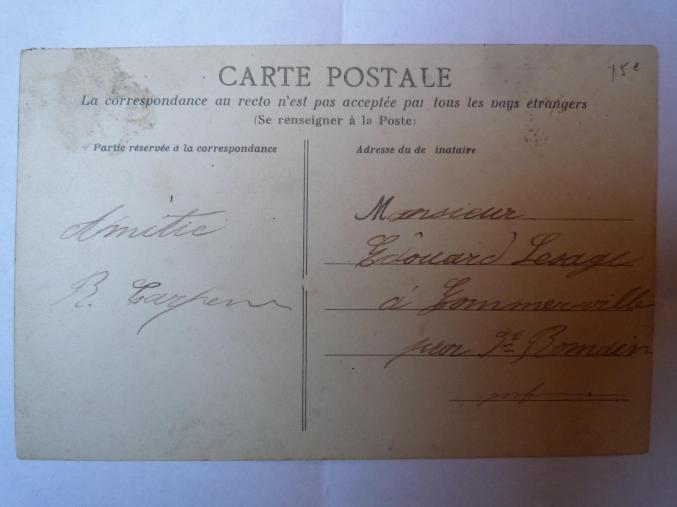 15c
CARTE POSTALE
La correspondance au recto n'est pas acceptée par tous les pays étrangers
(Se renseigner à la Poste)
Partie réservée à la correspondance
Adresse du de inataire
Amitié
R.
Monsieur
Edouard Lesage
à Gommerville
par St Romain